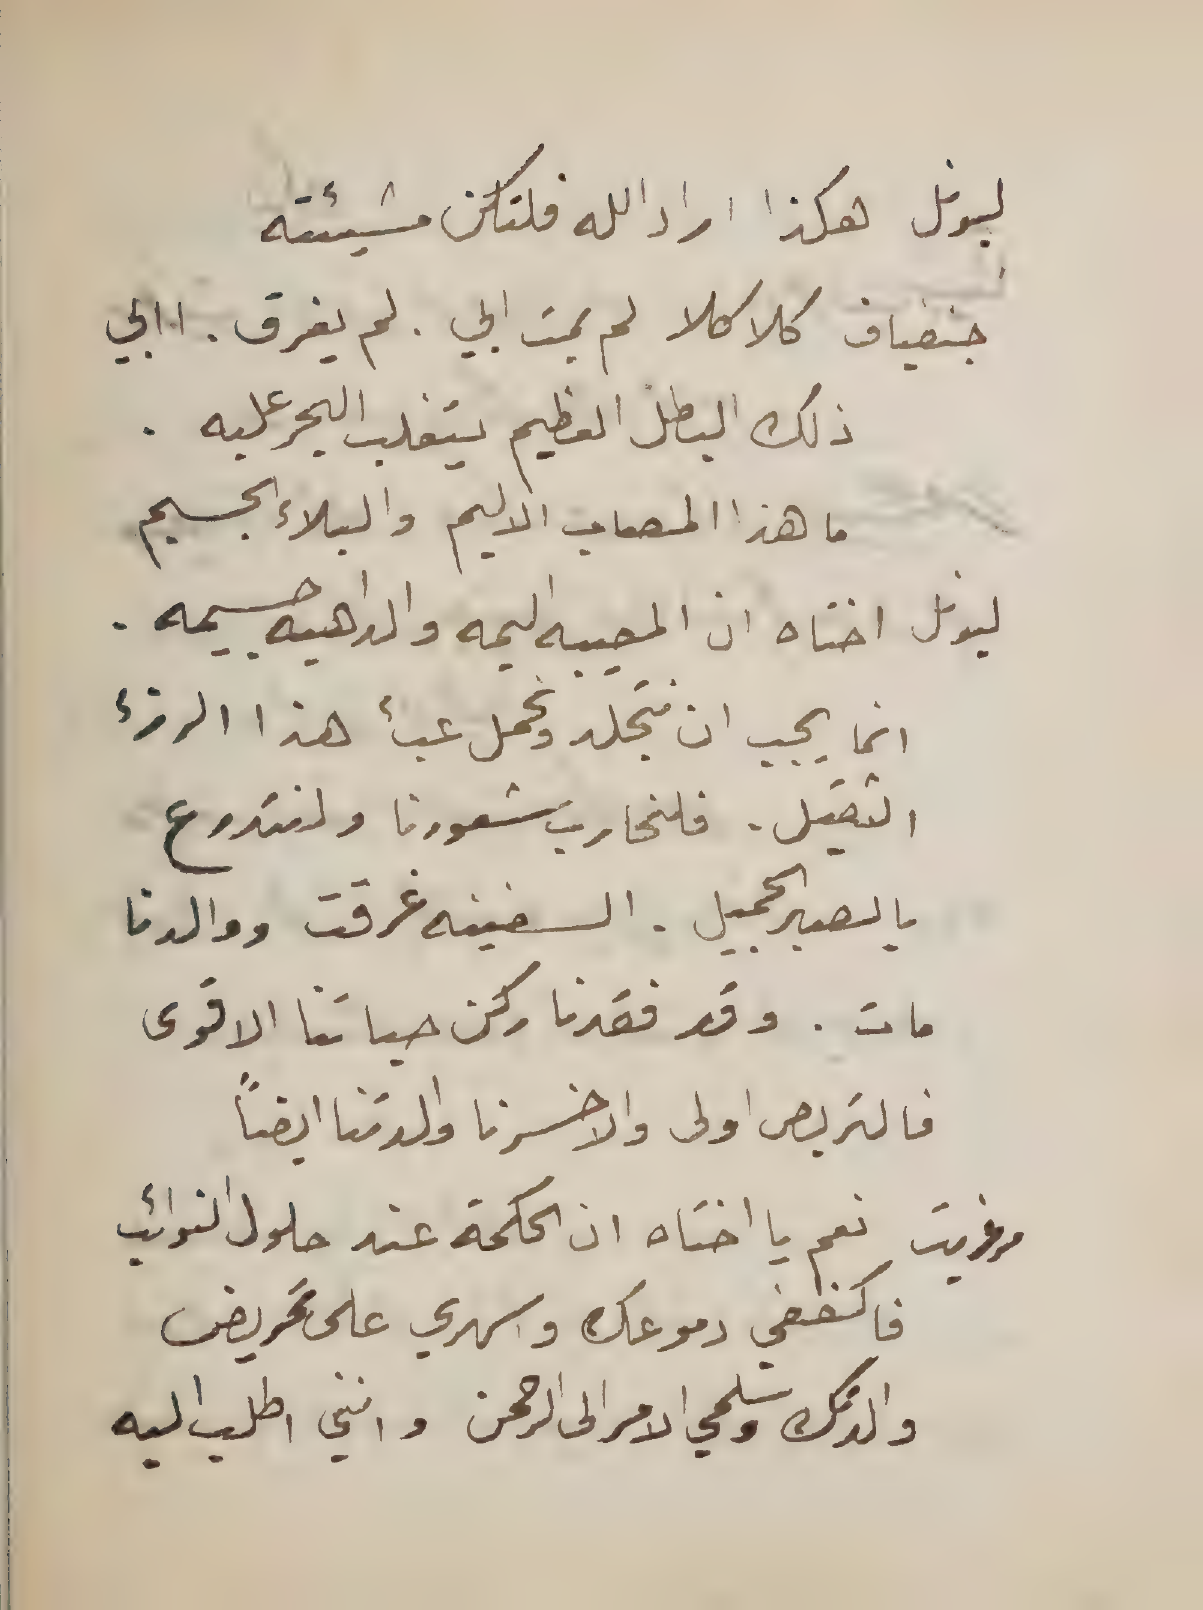 ليونل هكذا اراد الله فلتكن مشيئته
جنفياف كلا كلا لم يمت ابي . لم يغرق . اابي
ذلك البطل العظيم يتغلب البحر عليه .
ما هذا المصاب الاليم والبلاء الجسيم
ليونل اختاه ان المصيبه اليمه والداهيه جسيمه .
انما يجب ان نتجلد ونحمل عبئ هذا الرزئ
الثقيل . فلنحارب شعورنا ولنتدرع
بالصبر الجميل . السفينه غرقت ووالدنا
مات . وقد فقدنا ركن حياتنا الاقوى
فالتربص اولى والا خسرنا والدتنا ايضاً
مرغريت نعم يا اختاه ان الحكمة عند حلول النوائب
فاكفكفي دموعك واسهري على تمريض
والدتك وسلمي الامر الى الرحمن وانني اطلب اليه